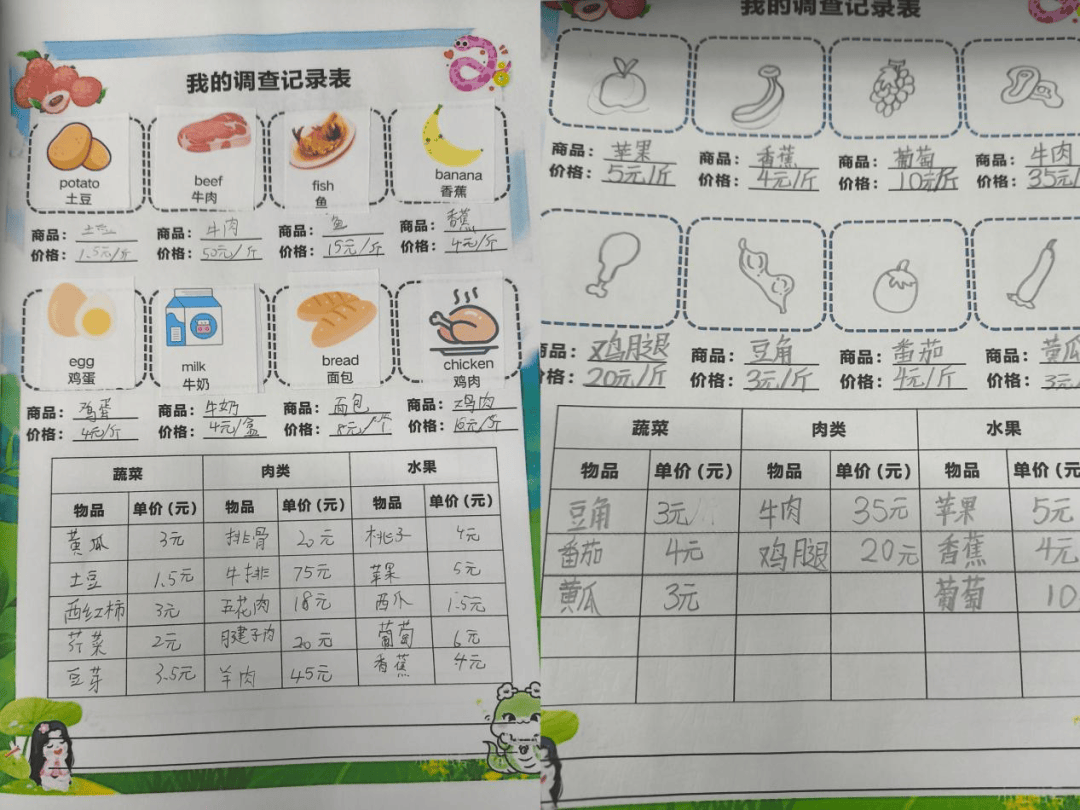 我的调查记录表
potato beef fish banana
土豆 牛肉 鱼 香蕉
商品：土豆 商品：牛肉 商品：鱼 商品：香蕉
价格：1.5元/斤 价格：50元/斤 价格：15元/斤 价格：4元/斤
egg milk bread chicken
鸡蛋 牛奶 面包 鸡肉
商品：鸡蛋 商品：牛奶 商品：面包 商品：鸡肉
价格：4元/斤 价格：4元/盒 价格：8元/个 价格：元/斤
蔬菜 肉类 水果
物品 单价(元) 物品 单价(元) 物品 单价(元)
黄瓜 3元 排骨 20元 桃子 4元
土豆 1.5元 牛排 75元 苹果 5元
西红柿 3元 五花肉 18元 西瓜 1.5元
芹菜 2元 腱子肉 20元 葡萄 6元
豆芽 3.5元 羊肉 45元 香蕉 4元
我的调查记录表
商品：苹果 商品：香蕉 商品：葡萄 商品：牛肉
价格：5元/斤 价格：4元/斤 价格：10元/斤 价格：35元/
商品：鸡腿 商品：豆角 商品：番茄 商品：黄瓜
价格：20元/斤 价格：3元/斤 价格：4元/斤 价格：3元/
蔬菜 肉类 水果
物品 单价(元) 物品 单价(元) 物品 单价(元
豆角 3元 牛肉 35元 苹果 5元
番茄 4元 鸡腿 20元 香蕉 4元
黄瓜 3元 葡萄 10